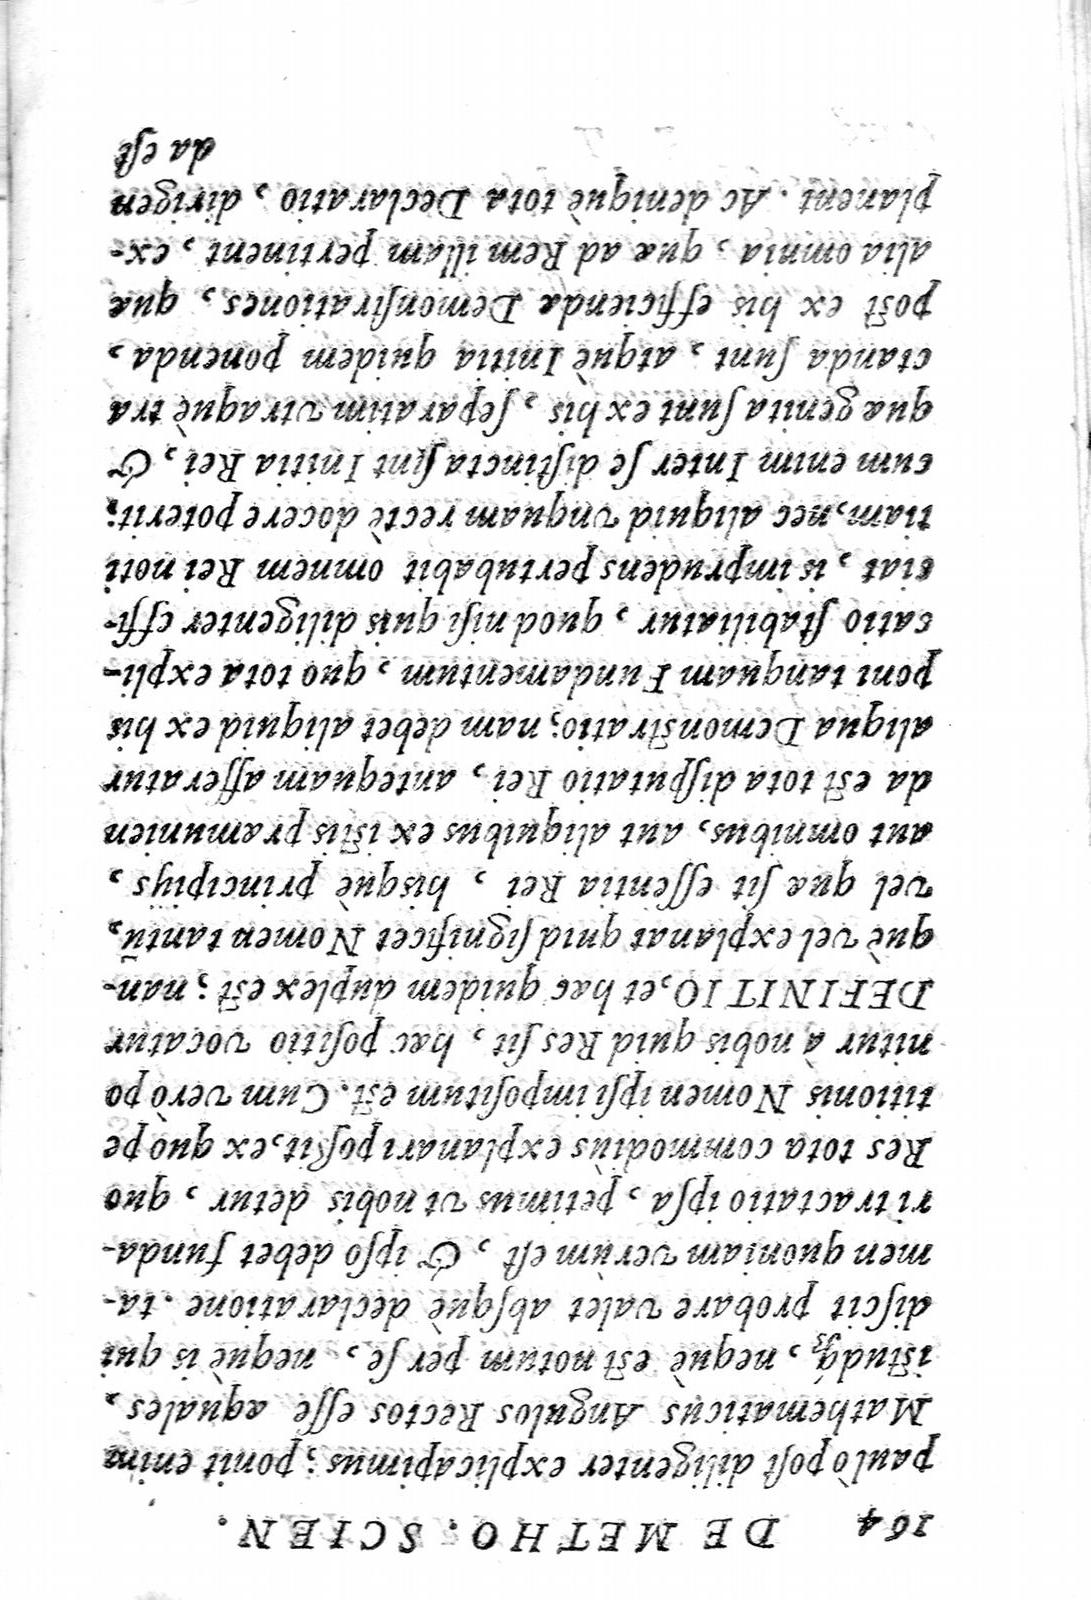 164 DE METHO. SCIEN.
paulò poſt diligenter explicapimus; ponit enim
Mathematicus Angulos Rectos eſſe æquales,
iſtudq́;, nequè eſt notum per ſe, nequè is qui
diſcit probare valet abſquè declaratione. ta-
men quoniam verùm eſt, & ipſo debet funda-
ri tractatio ipſa, petimus vt nobis detur, quo
Res tota commodiùs explanari poſſit, ex quò pe
titionis Nomen ipſi impoſitum eſt. Cum verò po
nitur à nobis quid Res ſit, hæc poſitio vocatur
DEFINITIO, et hæc quidem duplex eſt; nan-
què vel explanat quid ſignificet Nomen tantũ,
vel quæ ſit eſſentia Rei, hisquè principijs,
aut omnibus, aut aliquibus ex iſtis præmunien
da eſt tota diſputatio Rei, antequam afferatur
aliqua Demonſtratio; nam debet aliquid ex his
poni tanquam Fundamentum, quo tota expli-
catio ſtabiliatur, quod niſi quis diligenter effi-
ciat, is imprudens pertubabit omnem Rei noti
tiam, nec aliquid vnquam rectè docere poterit;
cum enim Inter ſe diſtincta ſint Initia Rei, &
quæ genita ſunt ex his, ſeparatim vtraquè tra
ctanda ſunt, atquè Initia quidem ponenda,
poſt ex his efficiendæ Demonſtrationes, quæ
alia omnia, quæ ad Rem illam pertinent, ex-
planent. Ac deniquè tota Declaratio, dirigen
da eſt